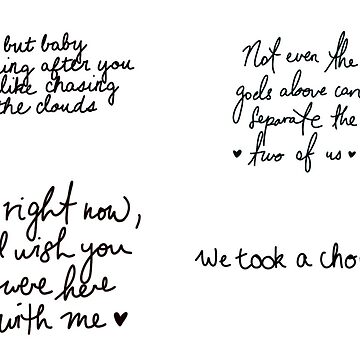 but baby
ing after you
like chasing
the clouds
Not even the
gods above can
separate the
♥ two of us ♥
right now,
wish you
were here
with me ♥
We took a cho